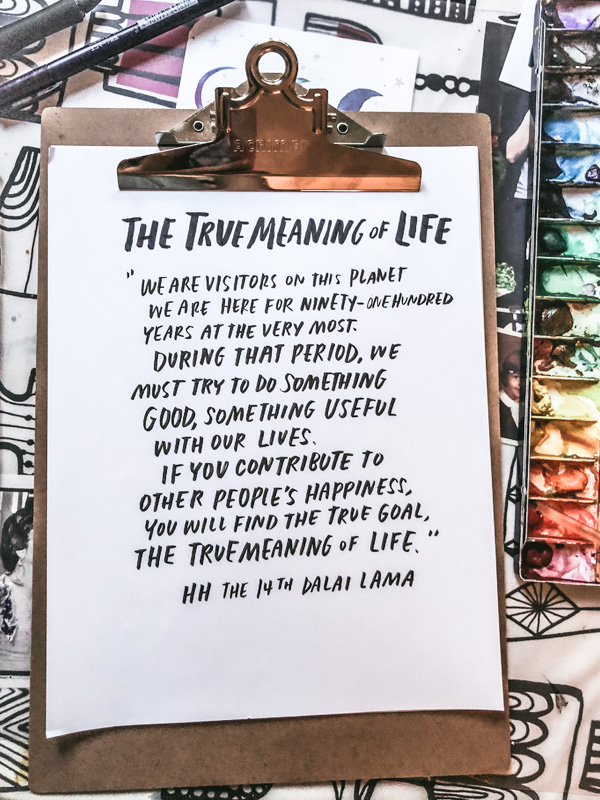 THE TRUE MEANING OF LIFE
"WE ARE VISITORS ON THIS PLANET
WE ARE HERE FOR NINETY-ONE HUNDRED
YEARS AT THE VERY MOST.
DURING THAT PERIOD, WE
MUST TRY TO DO SOMETHING
GOOD, SOMETHING USEFUL
WITH OUR LIVES.
IF YOU CONTRIBUTE TO
OTHER PEOPLE'S HAPPINESS,
YOU WILL FIND THE TRUE GOAL,
THE TRUE MEANING OF LIFE."
HH THE 14TH DALAI LAMA